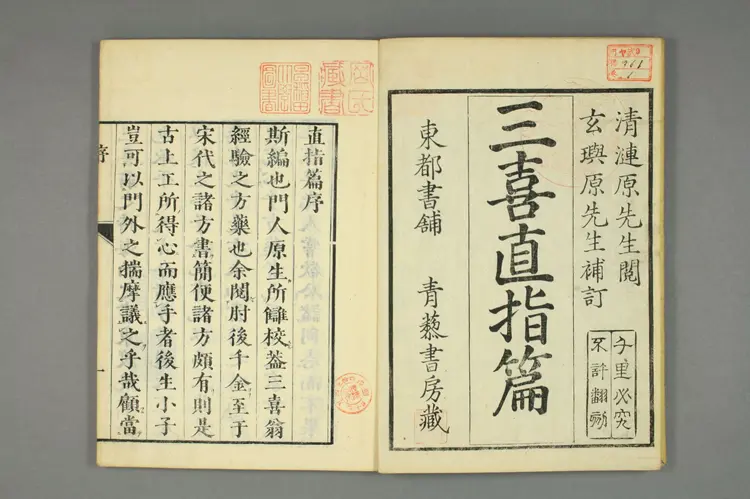 清漣原先生閱
玄璵原先生補訂
千里必究
不許翻刻
三喜直指篇
東都書舖 青藜書房藏
直指篇序
斯編也門人原生所讎校蓋三喜翁
經驗之方藥也余閱肘後千金至于
宋代之諸方書簡便諸方頗有則是
古上工所得心而應手者後生小子
豈可以門外之揣摩議之乎哉顧當
序
一
藏書
圖書